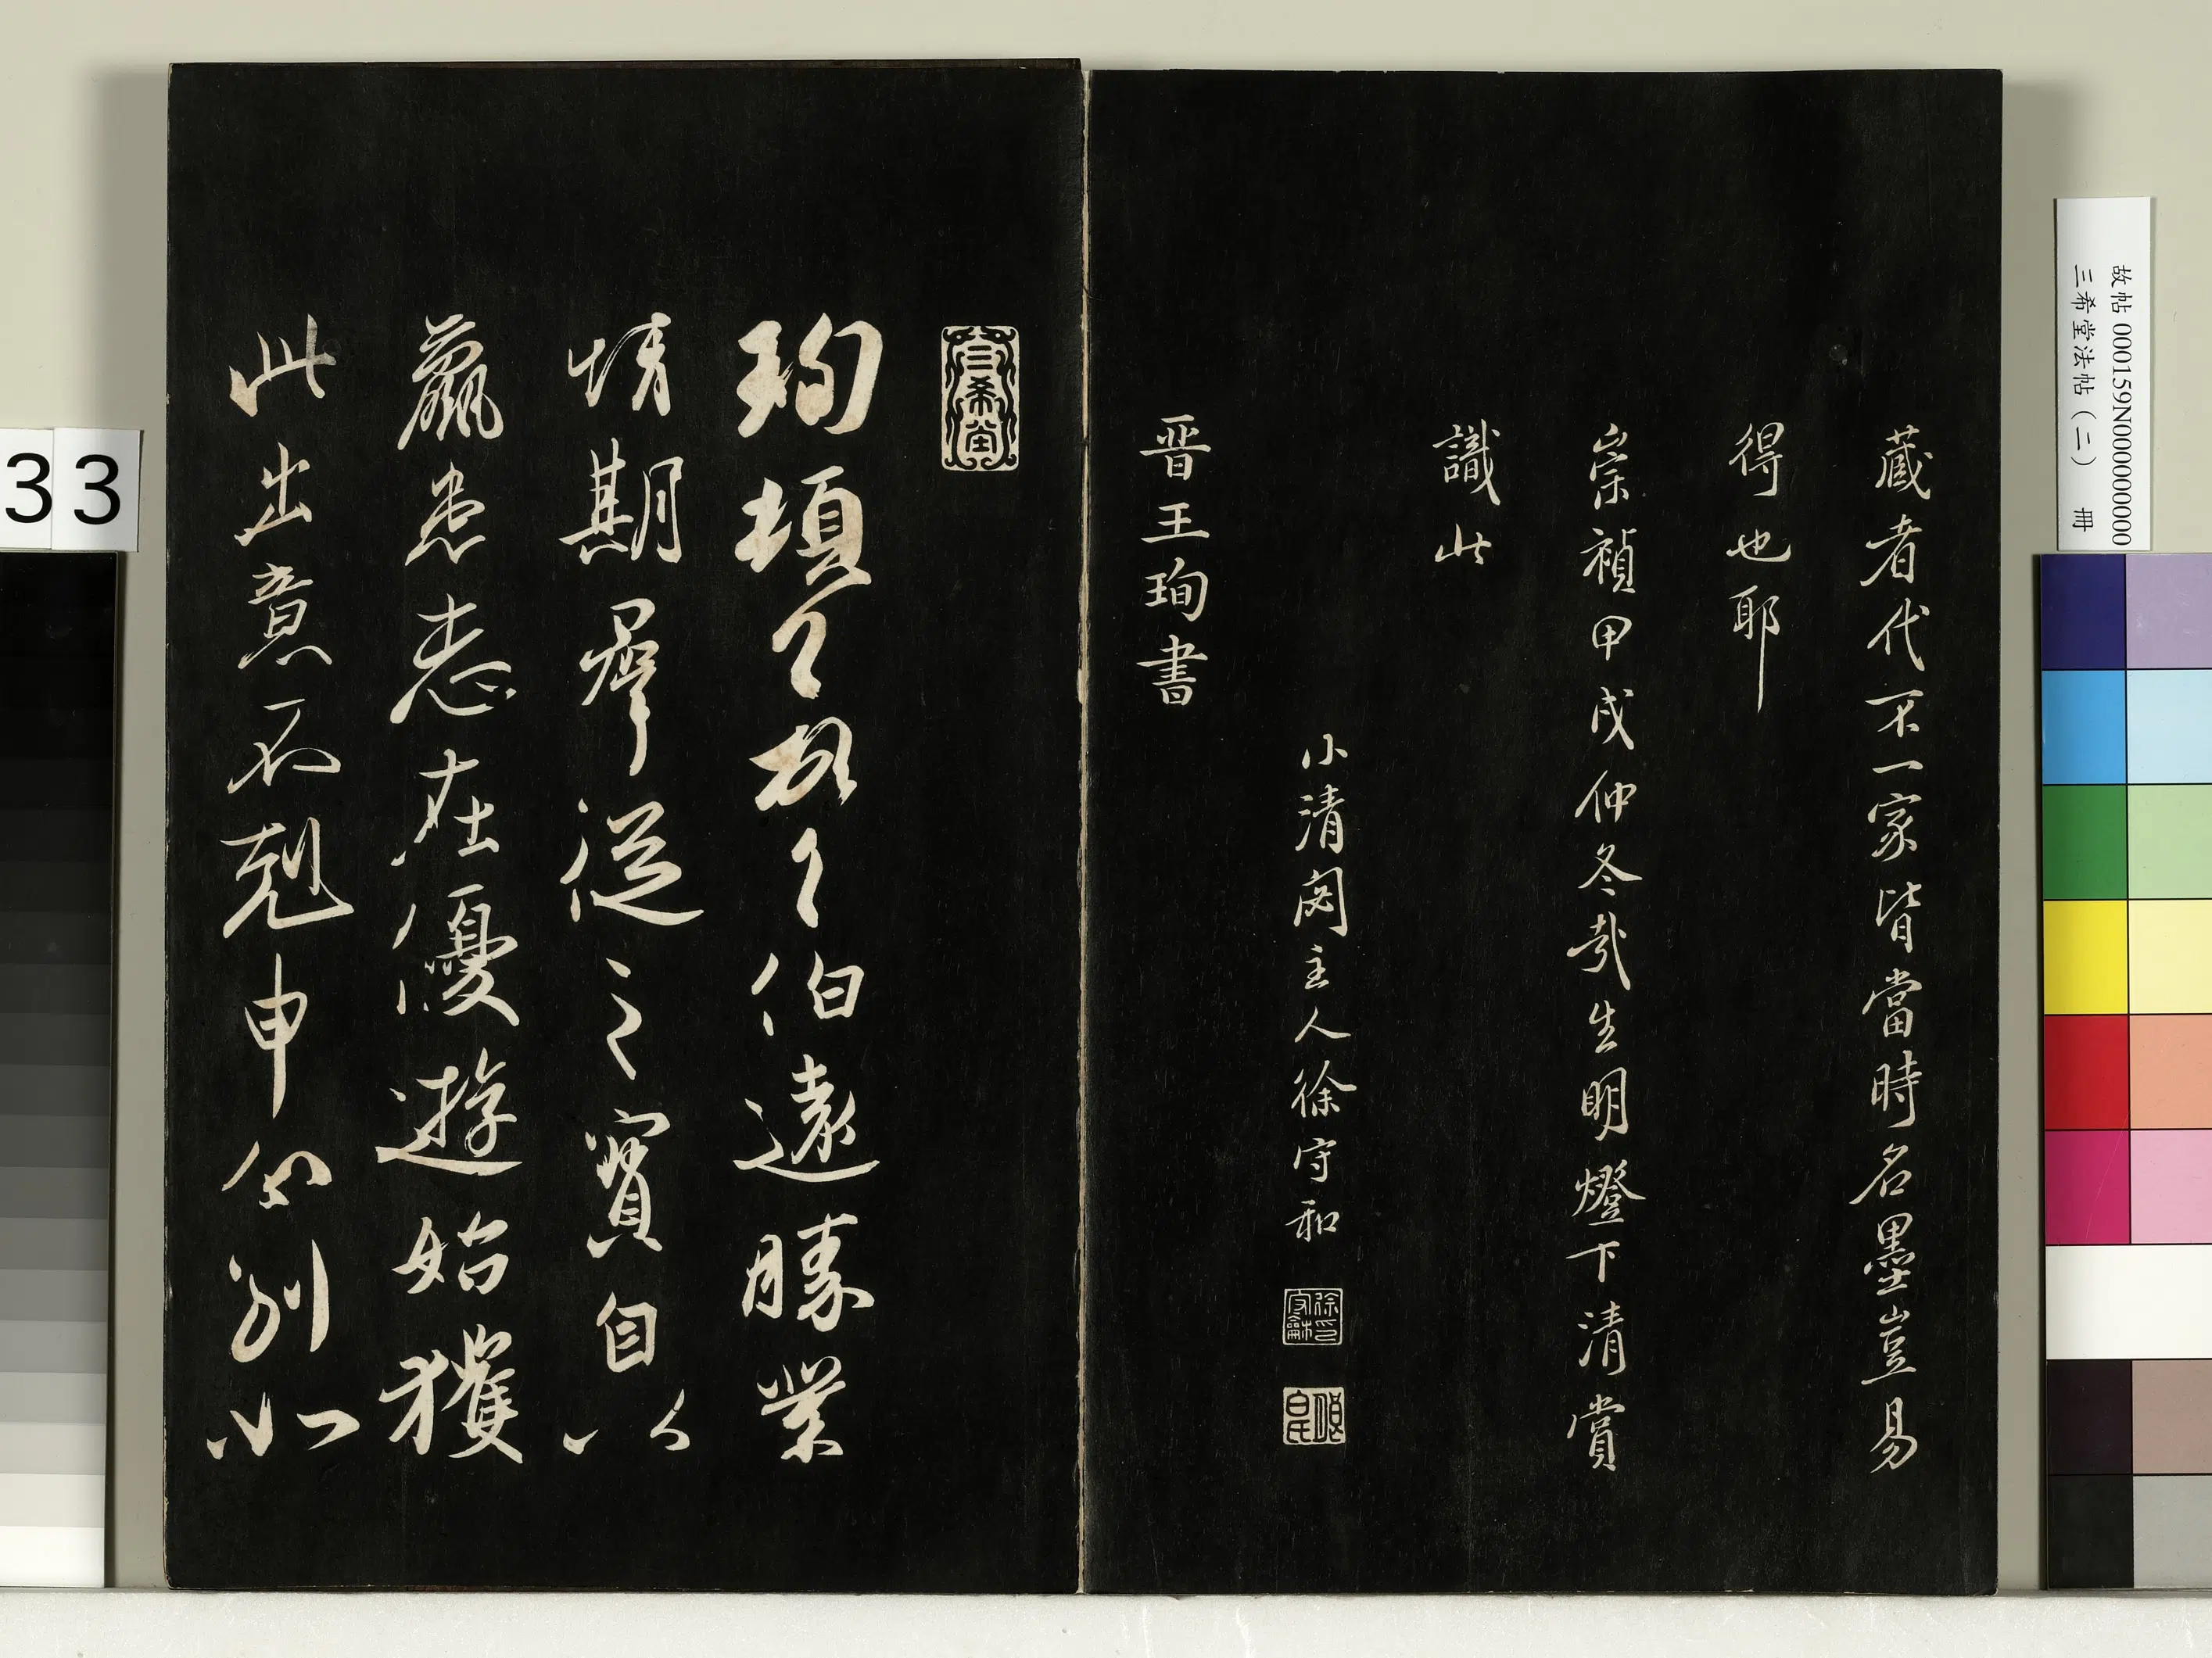 藏者代不一家皆當時名墨豈易
得也耶
崇禎甲戌仲冬哉生明燈下清賞
識此
小清閟主人徐守和
晋王珣書
三希堂
珣頓〻首〻伯遠勝業
情期羣從之寶自以
羸患志在優遊始獲
此出意不剋申分別如
故帖 000159N000000000
三希堂法帖（二） 冊
33